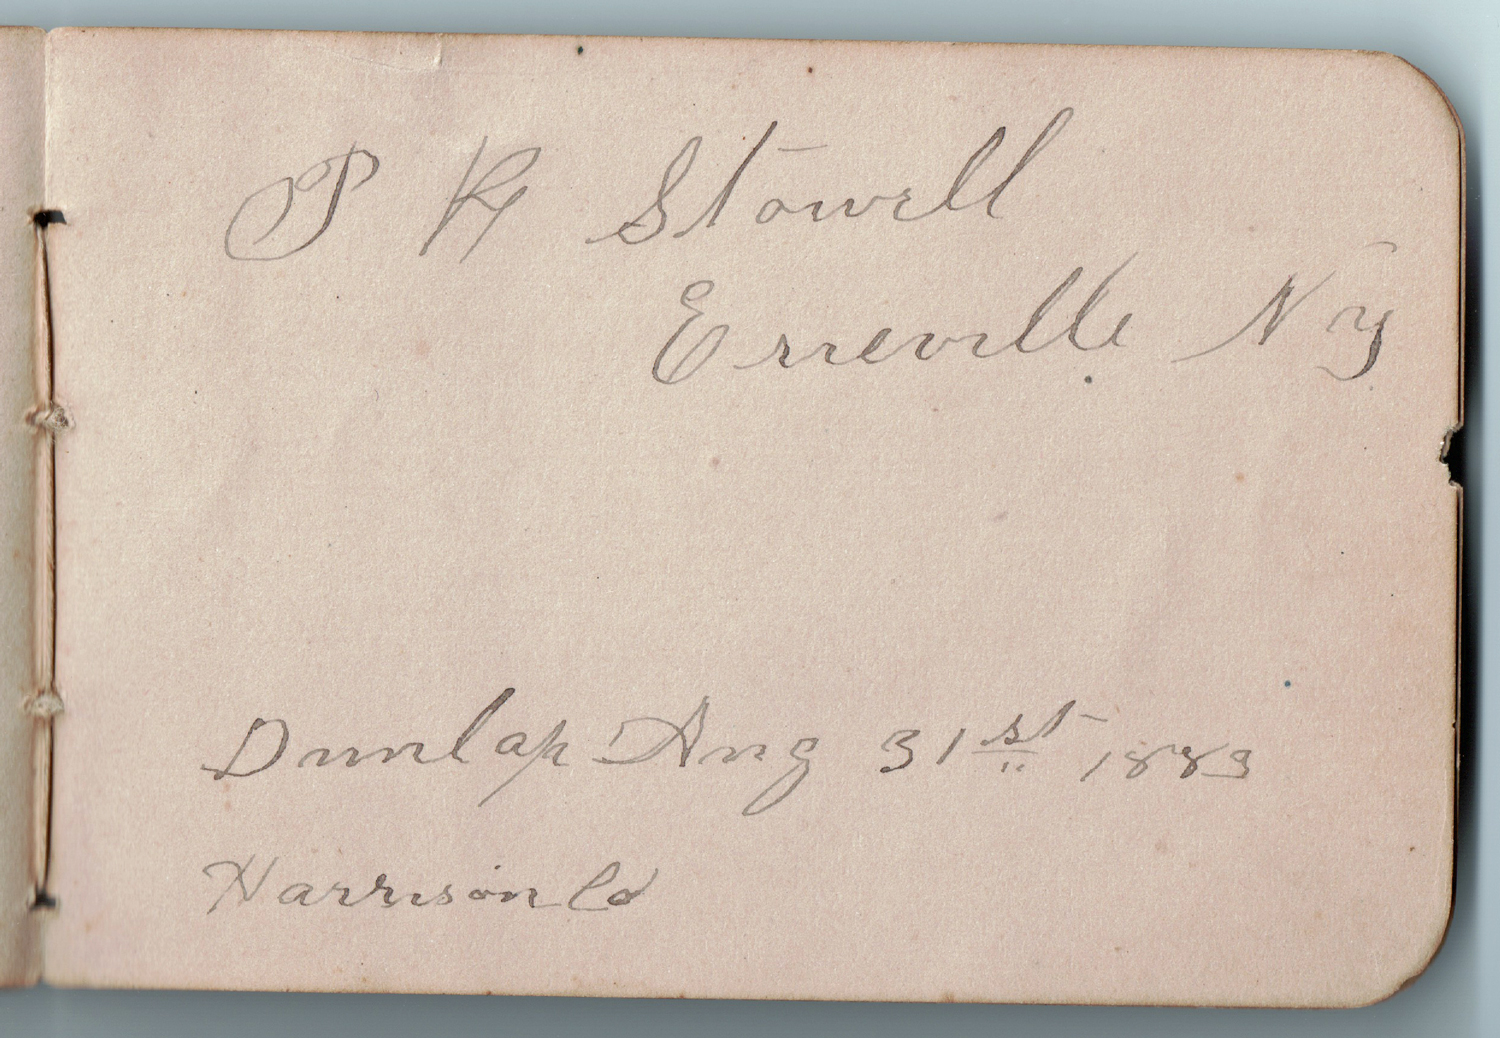 P K Stowell
Erieville N Y
Dunlap Aug 31st 1883
Harrison Co